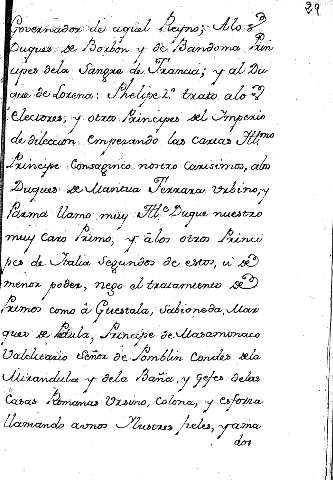 29
Governador de aqiel Reyno; Alo sᵈ
Duques de Borbon y de Bandoma Prin
cipes dela Sangre de Francia; y al Du
que de Lorena: Phelipe 2.º trato alo sᵈ
Electores, y otros Principes del Imperio
de dileccion, empesando las cartas Ill.mo
Principe Consagineo nostro Carisimos, alos
Duques de Mantua Ferrara Urbino, y
Parma llamo muy Ill.e Duque nuestro
muy Caro Primo, y âlos otros Princi
pes de Italia Segundos de estos, ú de
menor poder, nego el tratamiento de
Primos como â Guestala, Sabioneda, Mar
ques de Pdula, Principe de Masamonaco
Valditario Señor de Pomblin Condes dela
Mirandula y dela Baña, y Gefes delas
Casas Romanas Ursino, Colona, y esforza
llamando aunos Ilustres fieles, y ama
dos